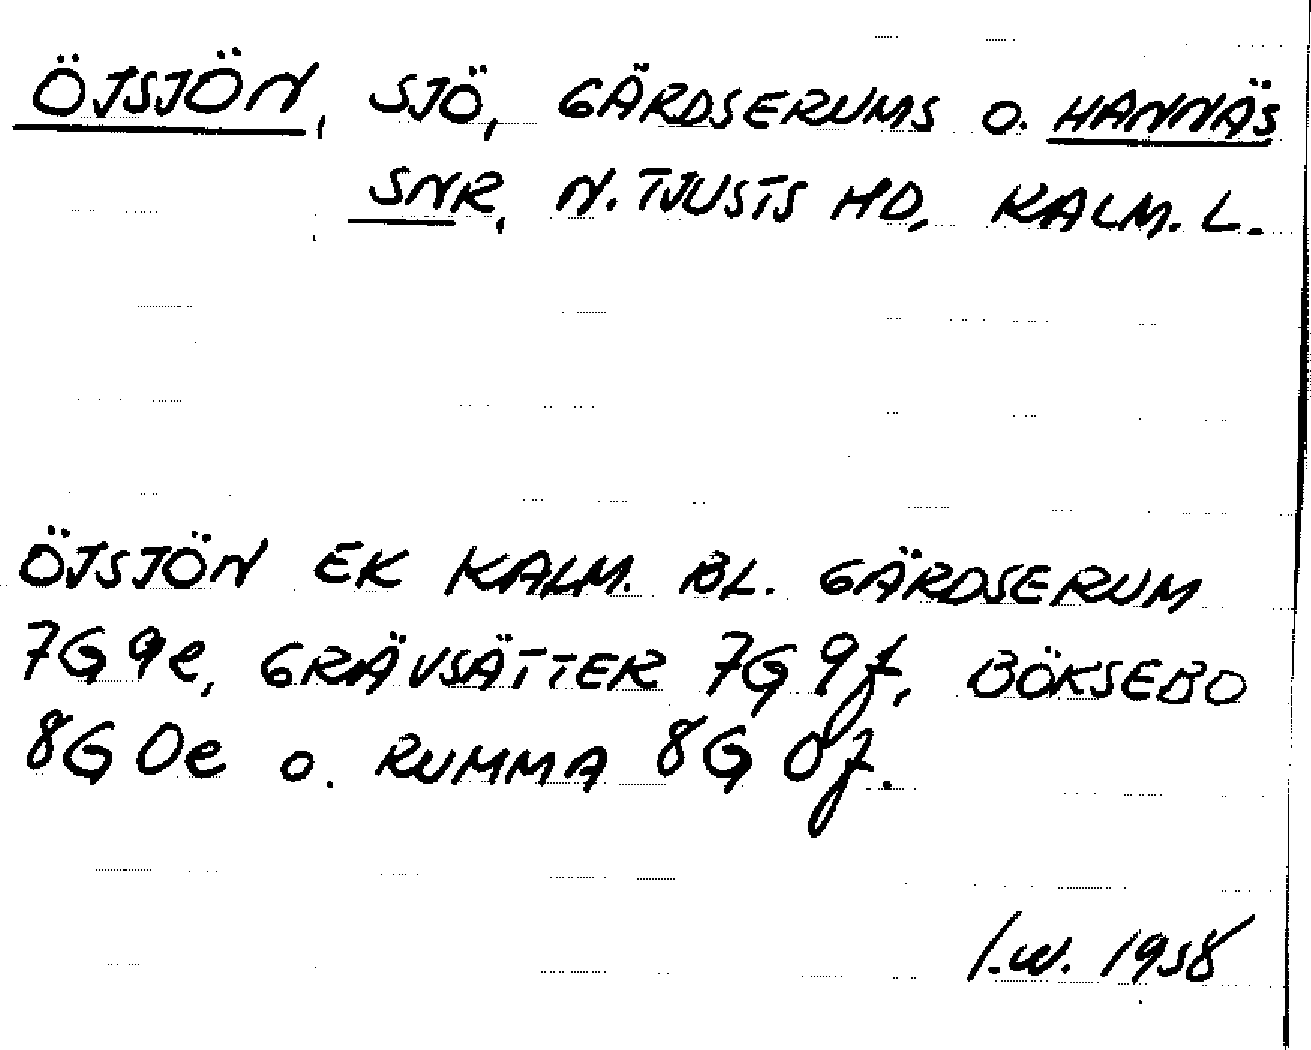 ÖJSJÖN, SJÖ, GÄRDSERUMS O. HANNÄS
SNR, N. TJUSTS HD, KALM. L.
ÖJSJÖN EK KALM. BL. GÄRDSERUM
7G 9e, GRÄVSÄTTER 7G 9f, BÖKSEBO
8G 0e O. RUMMA 8G 0f.
I.W. 1958